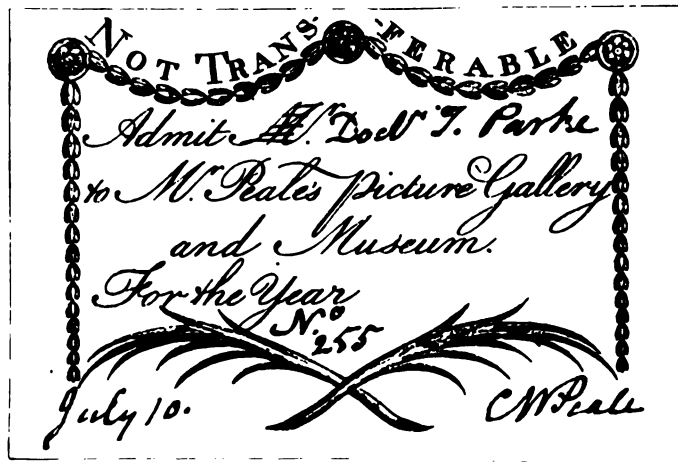 NOT TRANS-
-FERABLE
Admit Mr. Doctr T. Parke
to Mr. Peale's Picture Gallery
and Museum.
For the Year
No.
255
July 10.
CWPeale